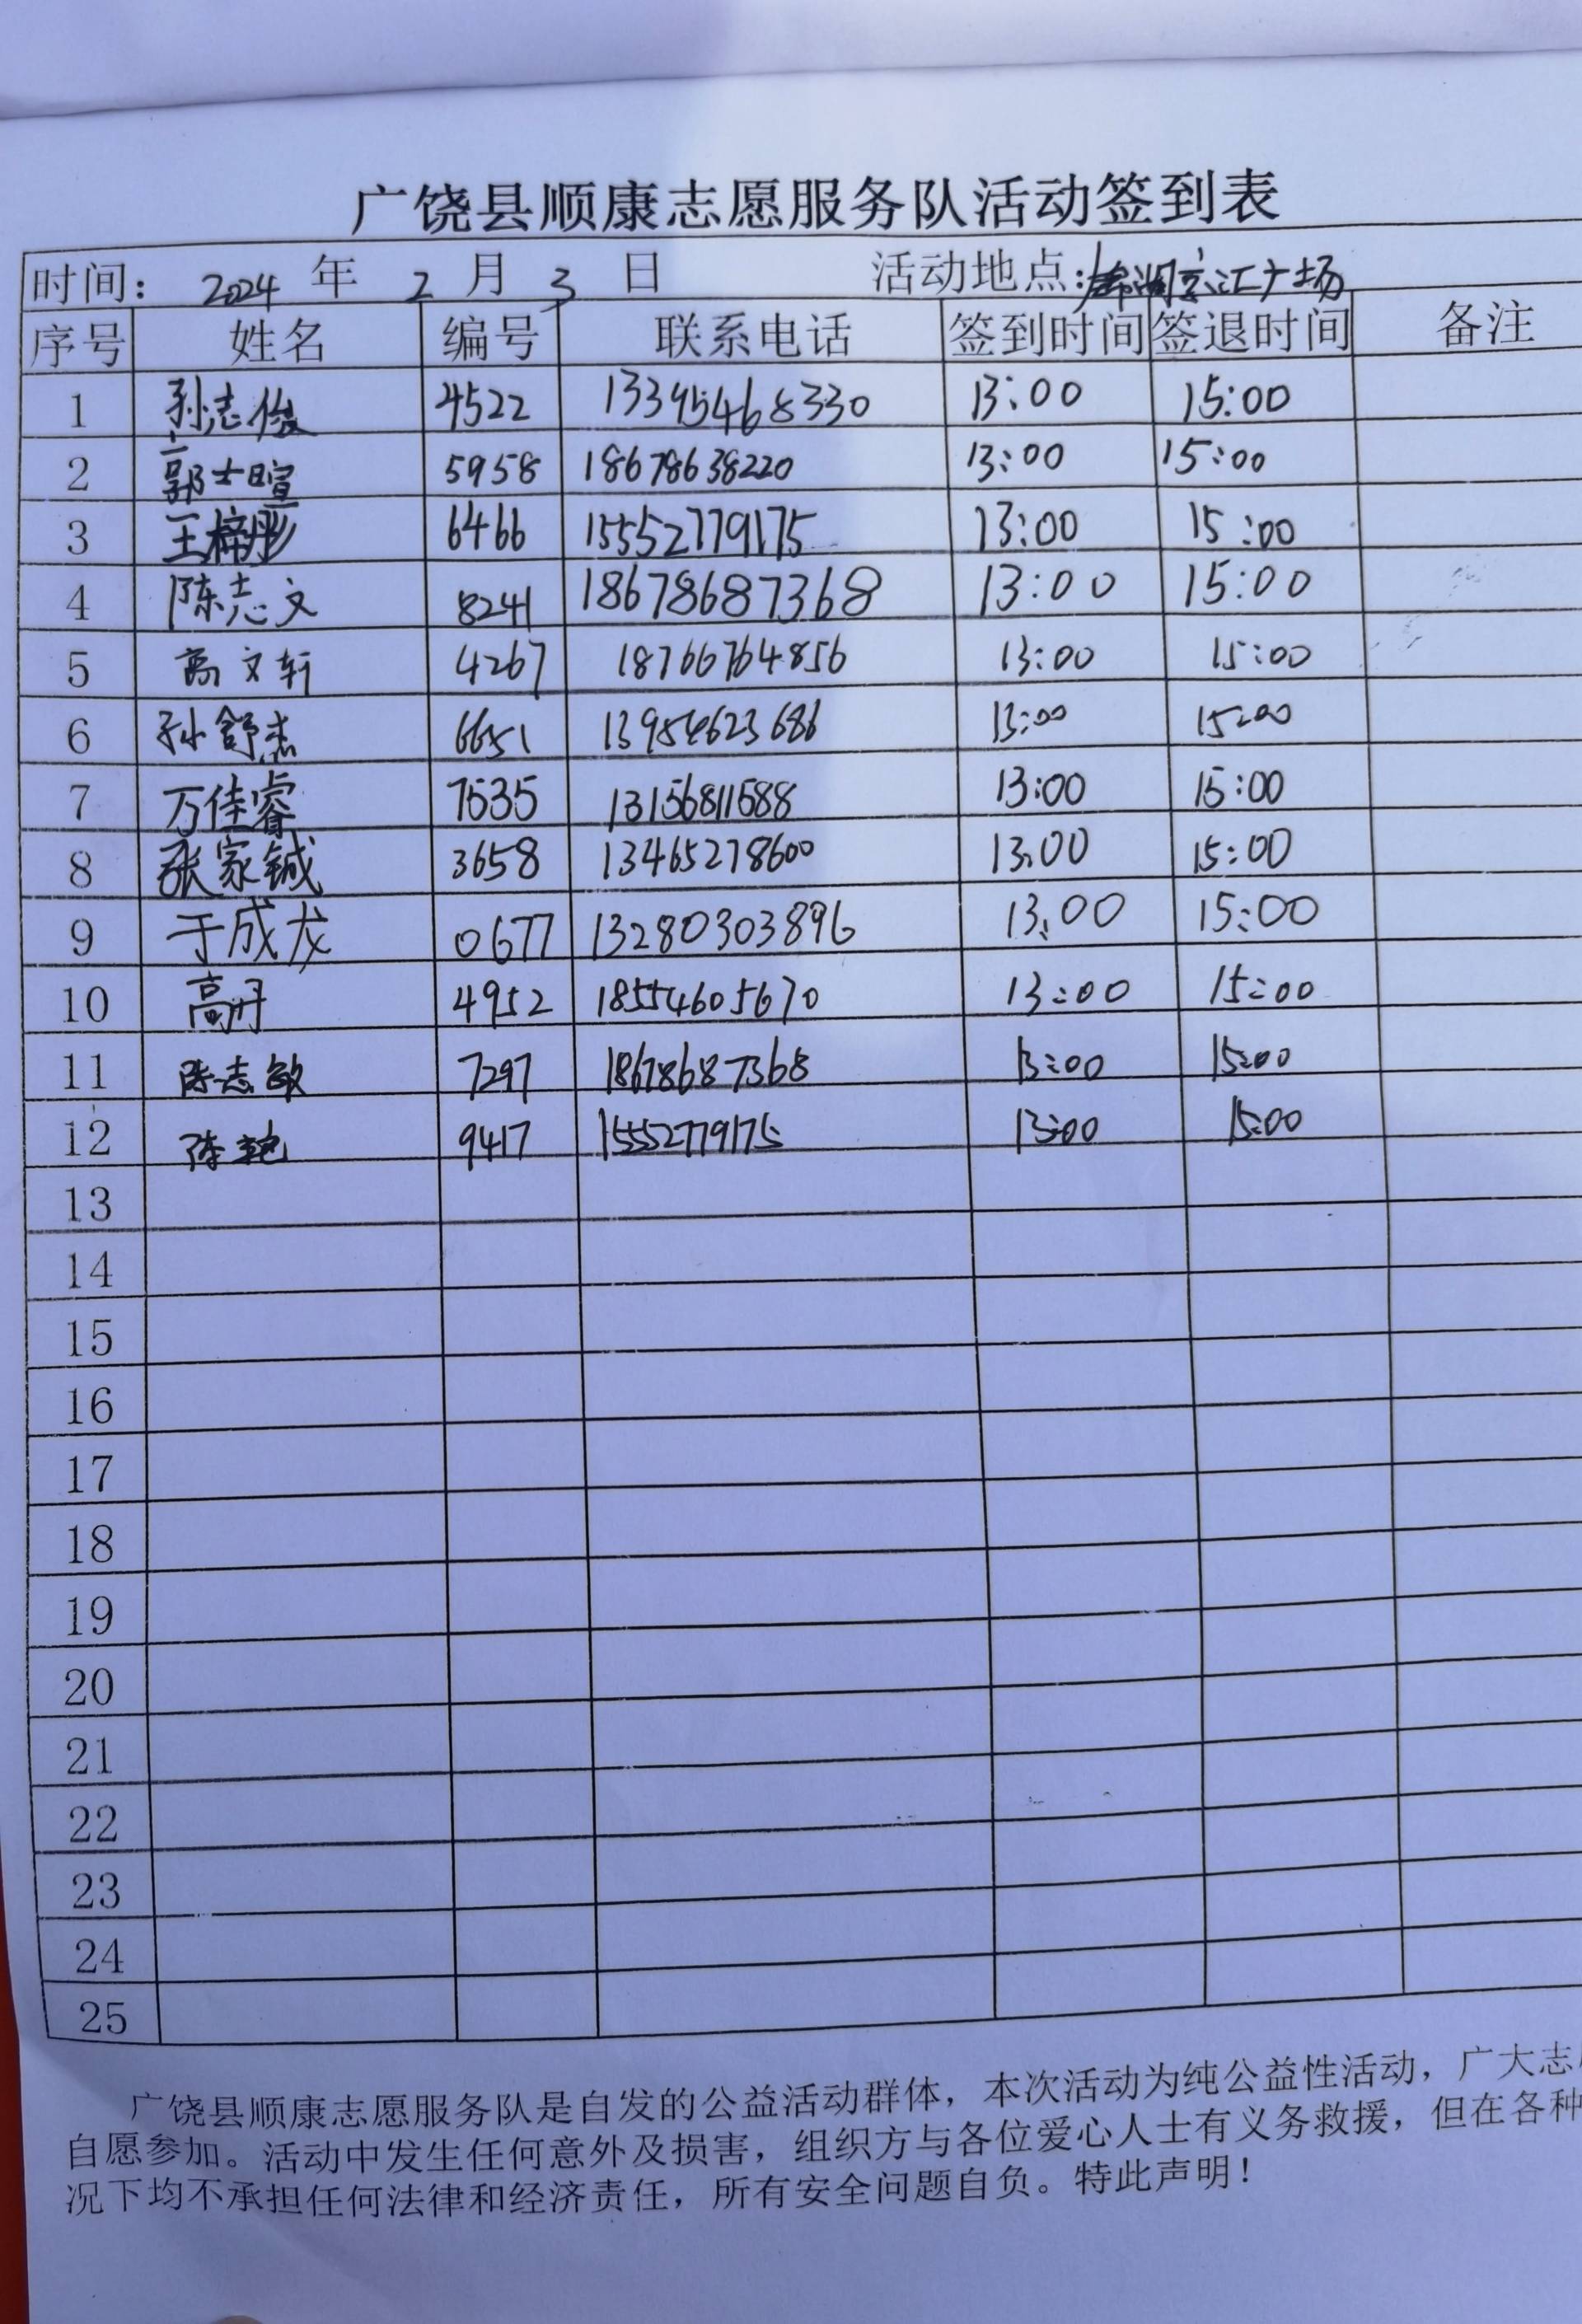 广饶县顺康志愿服务队活动签到表
时间: 2024 年 2 月 3 日 活动地点: 广场
序号 姓名 编号 联系电话 签到时间 签退时间 备注
1 孙志俊 4522 13395468330 13:00 15:00
2 郭士暄 5958 18678638220 13:00 15:00
3 王梓彤 6466 15552779175 13:00 15:00
4 陈志文 8241 18678687368 13:00 15:00
5 高文轩 4267 18766764856 13:00 15:00
6 孙舒杰 6651 13954623686 13:00 15:00
7 万佳睿 7535 13156811688 13:00 15:00
8 张家铖 3658 13465278600 13:00 15:00
9 于成龙 0677 13280303896 13:00 15:00
10 高丹 4952 18554605670 13:00 15:00
11 陈志敏 7297 18678687368 13:00 15:00
12 陈艳 9417 15552779175 13:00 15:00
13
14
15
16
17
18
19
20
21
22
23
24
25
广饶县顺康志愿服务队是自发的公益活动群体，本次活动为纯公益性活动，广大志
自愿参加。活动中发生任何意外及损害，组织方与各位爱心人士有义务救援，但在各种
况下均不承担任何法律和经济责任，所有安全问题自负。特此声明！